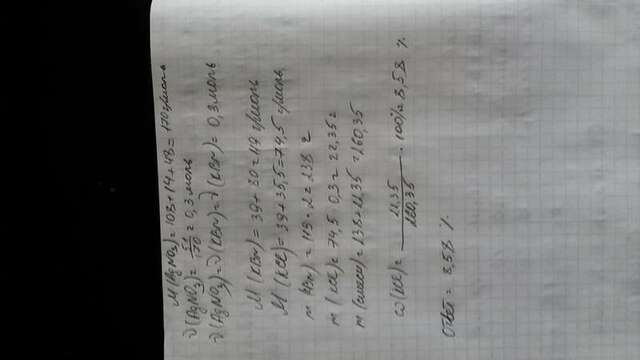 M(AgNO₃) = 108 + 14 + 48 = 170 г/моль
ν(AgNO₃) = 51/170 = 0,3 моль
ν(AgNO₃) = ν(KBr) = ν(KBr) = 0,3 моль
M(KBr) = 39 + 80 = 119 г/моль
M(KCl) = 39 + 35,5 = 74,5 г/моль
m(KBr) = 119 · 2 = 238 г
m(KCl) = 74,5 · 0,3 = 22,35 г
m(смеси) = 238 + 22,35 = 260,35
ω(KCl) = 22,35/260,35 · 100% = 8,58 %
Ответ = 8,58 %